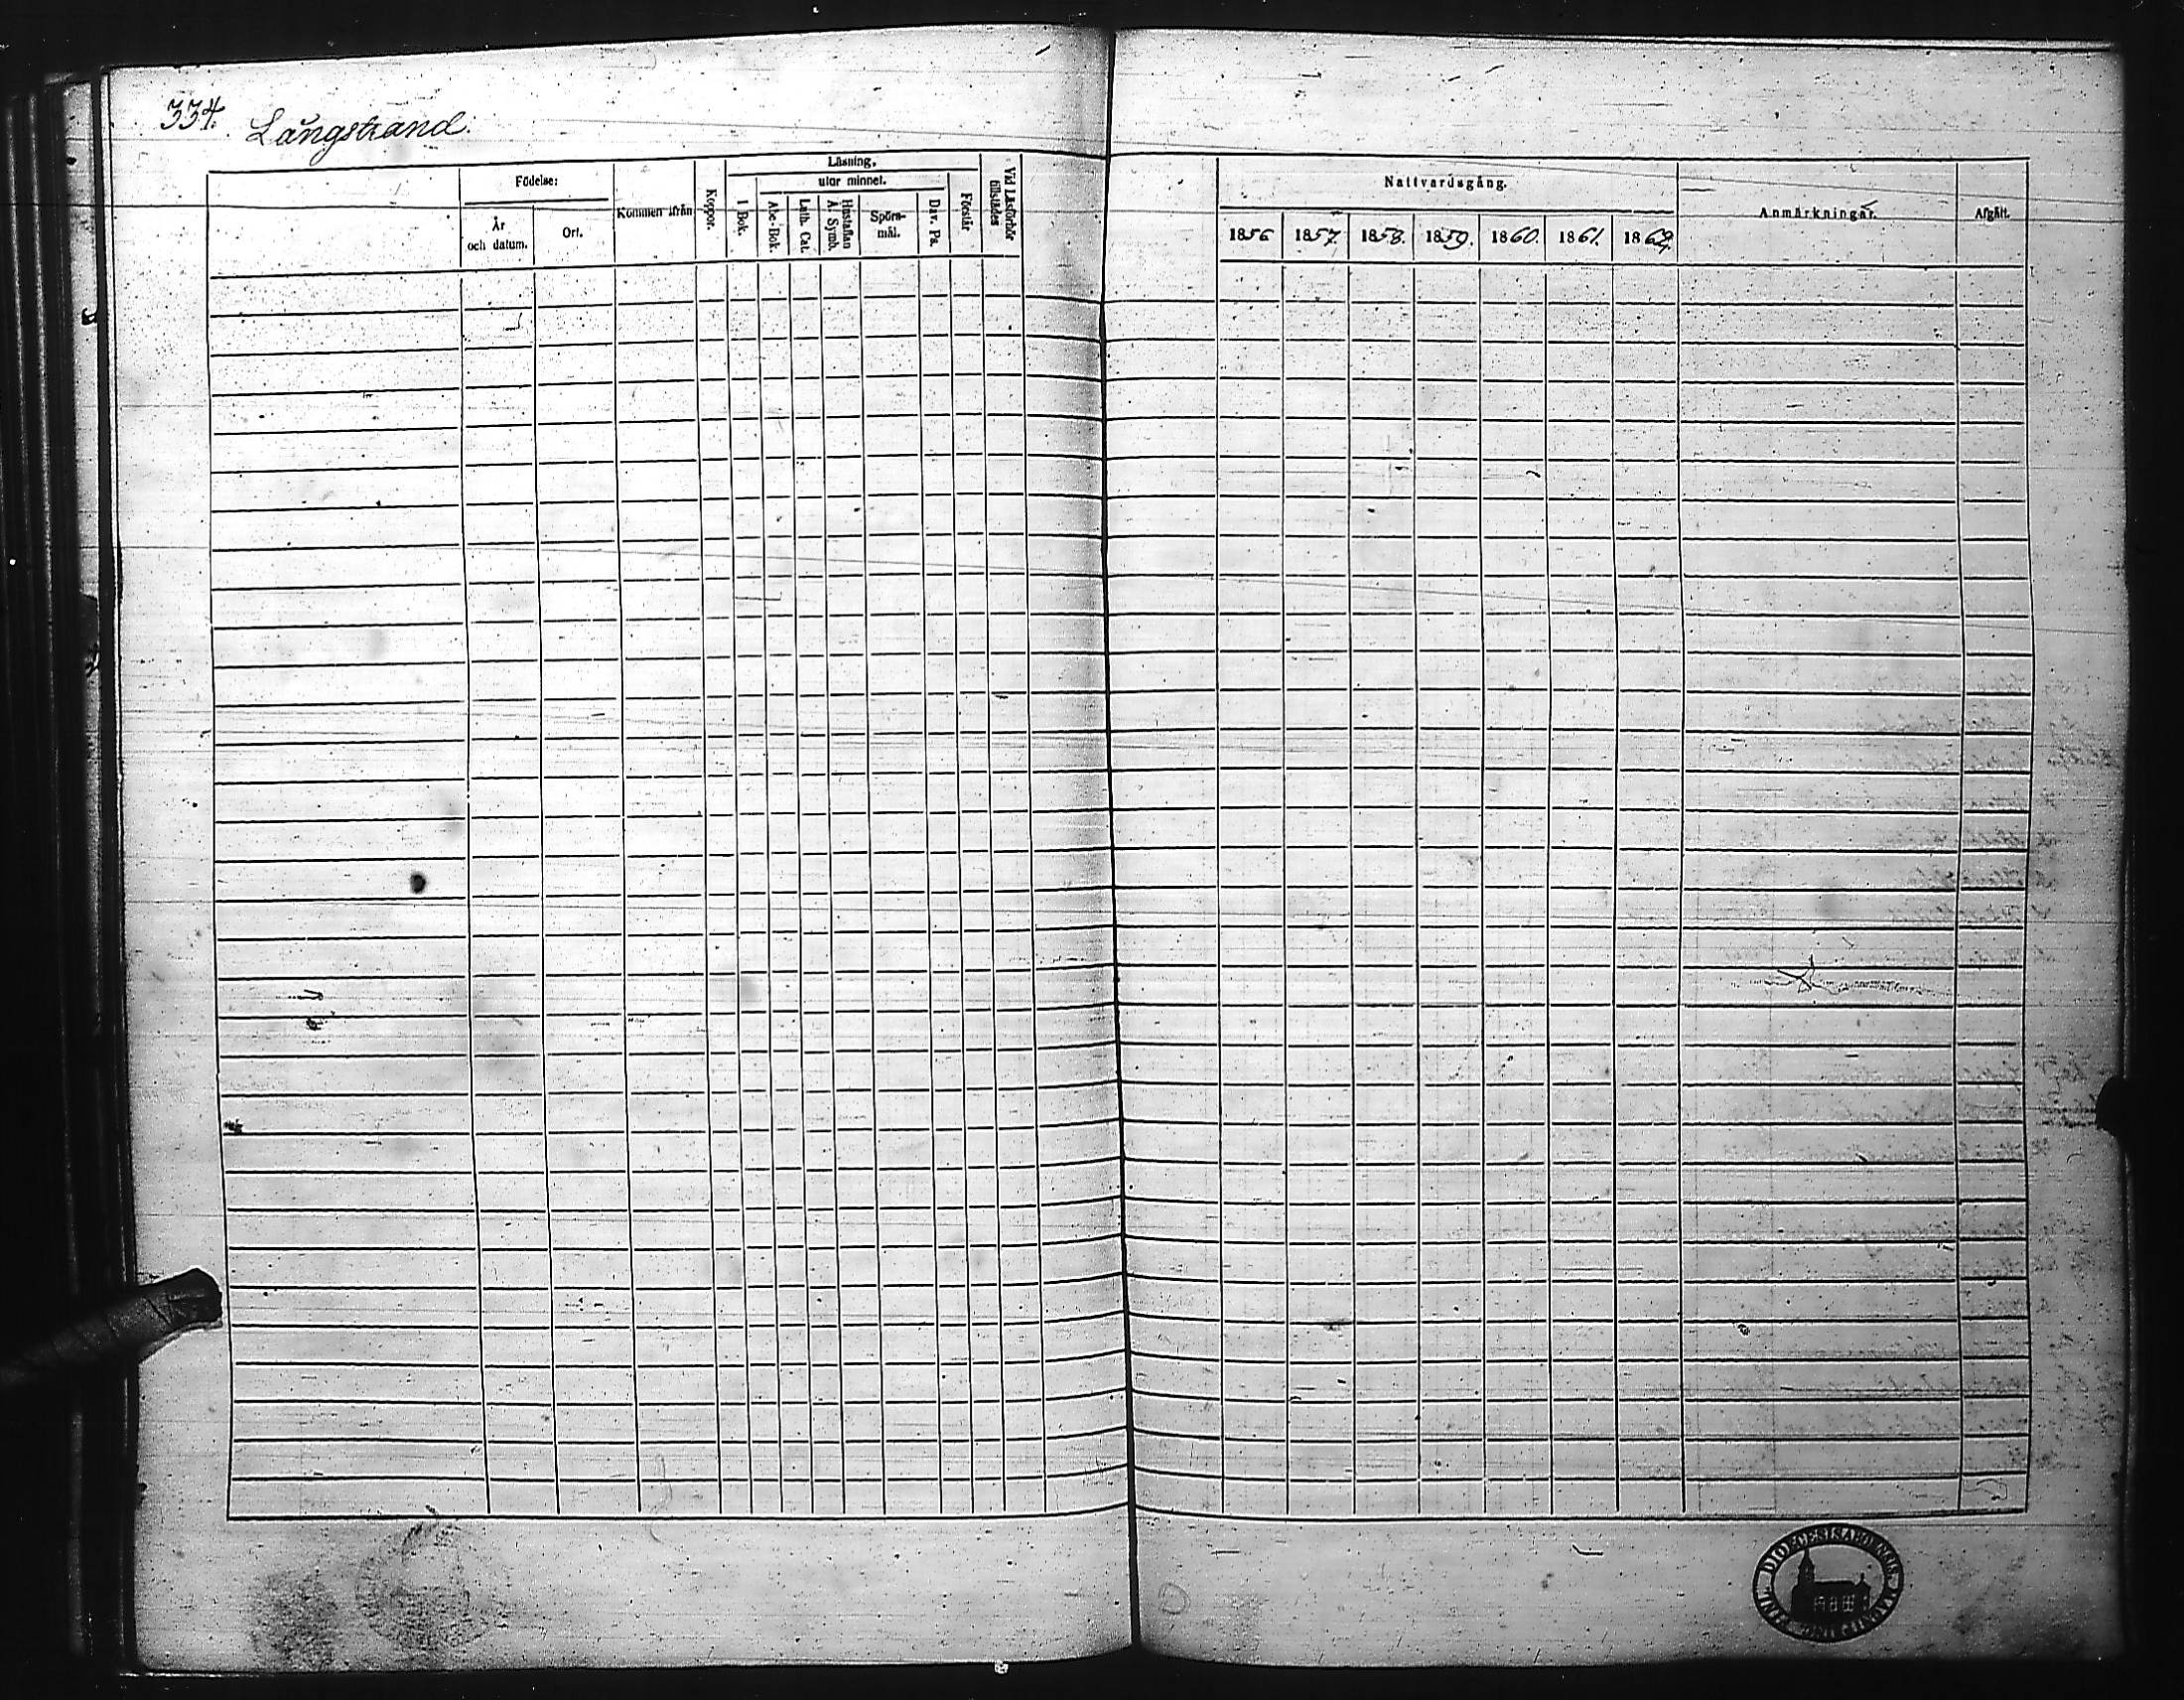 334.
Långstrand.
Födelse:
År
och datum.
Ort.
Kommen ifrån
Koppor.
Läsning,
utur minnet.
I Bok.
Abc-Bok.
Luth. Cat.
Hustaflan
A. Symb.
Spörs-
mål.
Dav. Ps.
Förstår
Vid Läsförhör
tillstädes
Nattvardsgång.
1856 1857. 1858. 1859. 1860. 1861. 1862.
Anmärkningar.
Afgått.